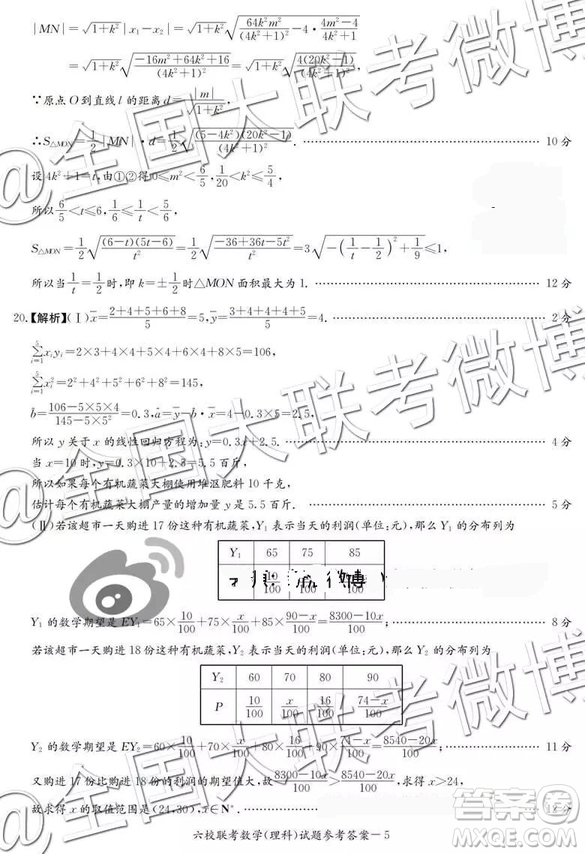 |MN|=√(1+k²)|x₁-x₂|=√(1+k²)√(64k²m²/(4k²+1)²-4·(4m²-4)/(4k²+1))
=√(1+k²)√((-16m²+64k²+16)/(4k²+1)²)=√(1+k²)√(4(20k²-1)/(4k²+1)²),
∵原点O到直线l的距离d=|m|/√(1+k²),
∴S△MON=1/2|MN|·d=1/2√((5-4k²)(20k²-1)/(4k²+1)²). 10分
设4k²+1=t,由①②得0≤m²<6/5,1/20<k²≤5/4,
所以6/5<t≤6,1/6≤1/t<5/6,
S△MON=1/2√((6-t)(5t-6)/t²)=1/2√((-36+36t-5t²)/t²)=3√(-(1/t-1/2)²+1/9)≤1,
所以当1/t=1/2时,即k=±1/2时△MON面积最大为1. 12分
20.【解析】(Ⅰ)x̄=(2+4+5+6+8)/5=5,ȳ=(3+4+4+4+5)/5=4. 2分
∑xᵢyᵢ=2×3+4×4+5×4+6×4+8×5=106,
∑xᵢ²=2²+4²+5²+6²+8²=145,
b=(106-5×5×4)/(145-5×5²)=0.3,a=ȳ-b·x̄=4-0.3×5=2.5,
所以y关于x的线性回归方程为:y=0.3x+2.5. 4分
当x=10时,y=0.3×10+2.5=5.5百斤,
所以如果每个有机蔬菜大棚使用堆沤肥料10千克,
估计每个有机蔬菜大棚产量的增加量y是5.5百斤. 5分
(Ⅱ)若该超市一天购进17份这种有机蔬菜,Y₁表示当天的利润(单位:元),那么Y₁的分布列为
Y₁ 65 75 85
10/100
Y₁的数学期望是EY₁=65×10/100+75×x/100+85×(90-x)/100=(8300-10x)/100; 8分
若该超市一天购进18份这种有机蔬菜,Y₂表示当天的利润(单位:元),那么Y₂的分布列为
Y₂ 60 70 80 90
P 10/100 x/100 16/100 (74-x)/100
Y₂的数学期望是EY₂=60×10/100+70×x/100+80×16/100+90×(74-x)/100=(8540-20x)/100; 11分
又购进17份比购进18份的利润的期望值大,故(8300-10x)/100>(8540-20x)/100,求得x>24,
故求得x的取值范围是(24,30),x∈N*. 12分
六校联考数学(理科)试题参考答案-5
@全国大联考微博
@全国大联考微博